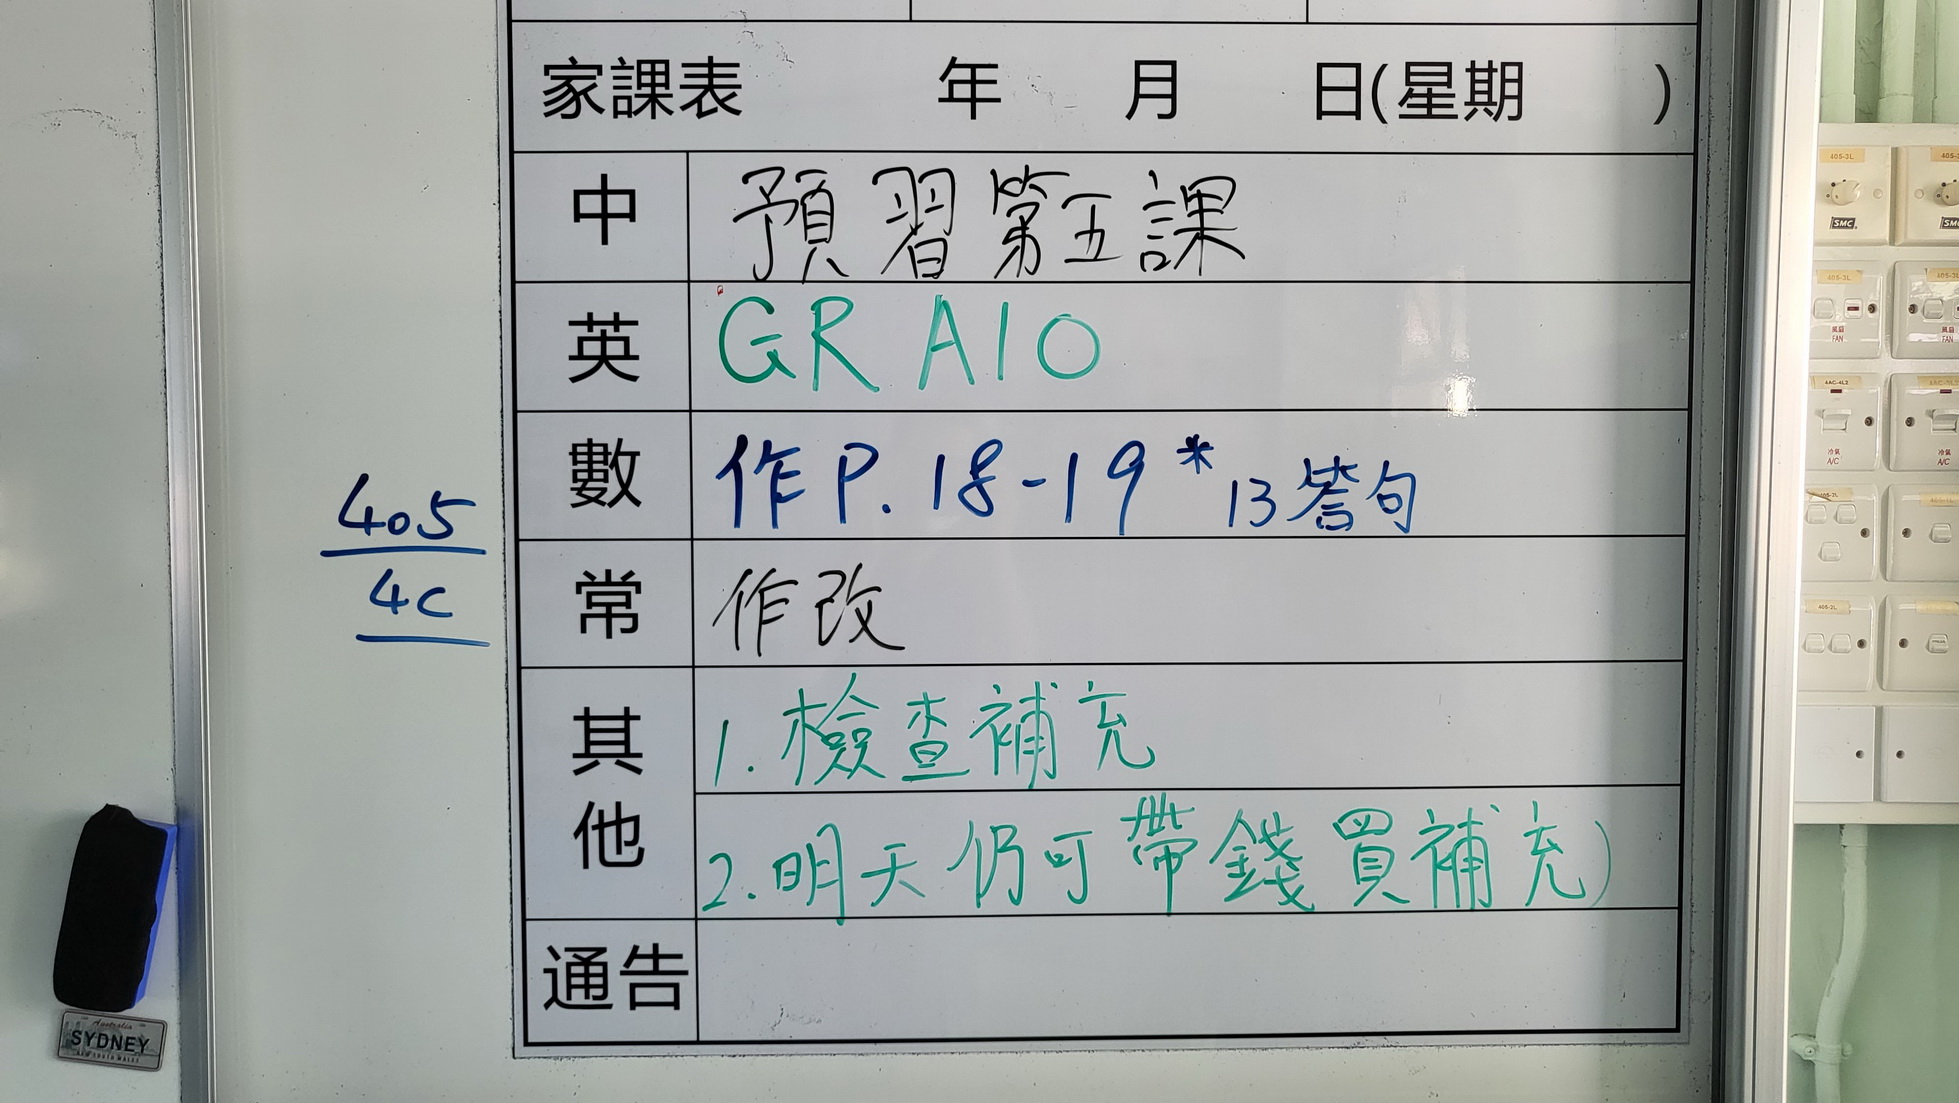 家課表 年 月 日(星期 )
中 預習第五課
英 GR A10
數 作P.18-19 * 13答句
405
4C
常 作改
其他
1.檢查補充
2.明天仍可帶錢買補充)
通告
Australia
SYDNEY
NEW SOUTH WALES
405-3L
SMC
405-3L
風扇
FAN
風扇
FAN
4AC-4L2
冷氣
A/C
冷氣
A/C
405-2L